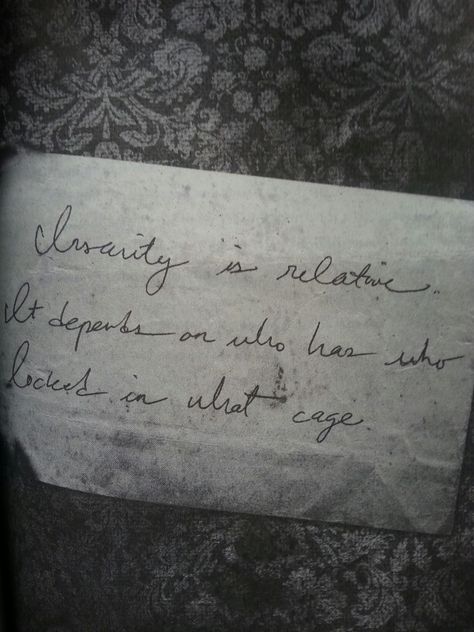 Insanity is relative.
It depends on who has who
locked in what cage.